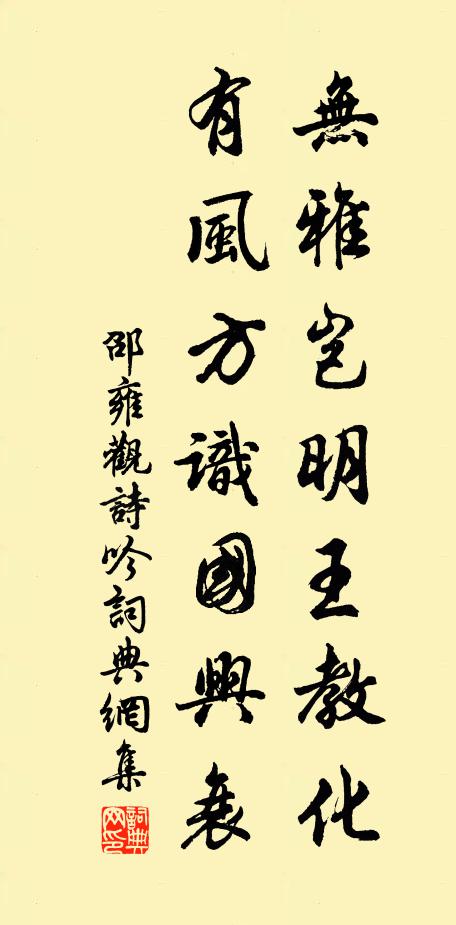 無雅岂明王教化
有風方識國興衰
邵雍觀詩吟詞典網集
詞典網印